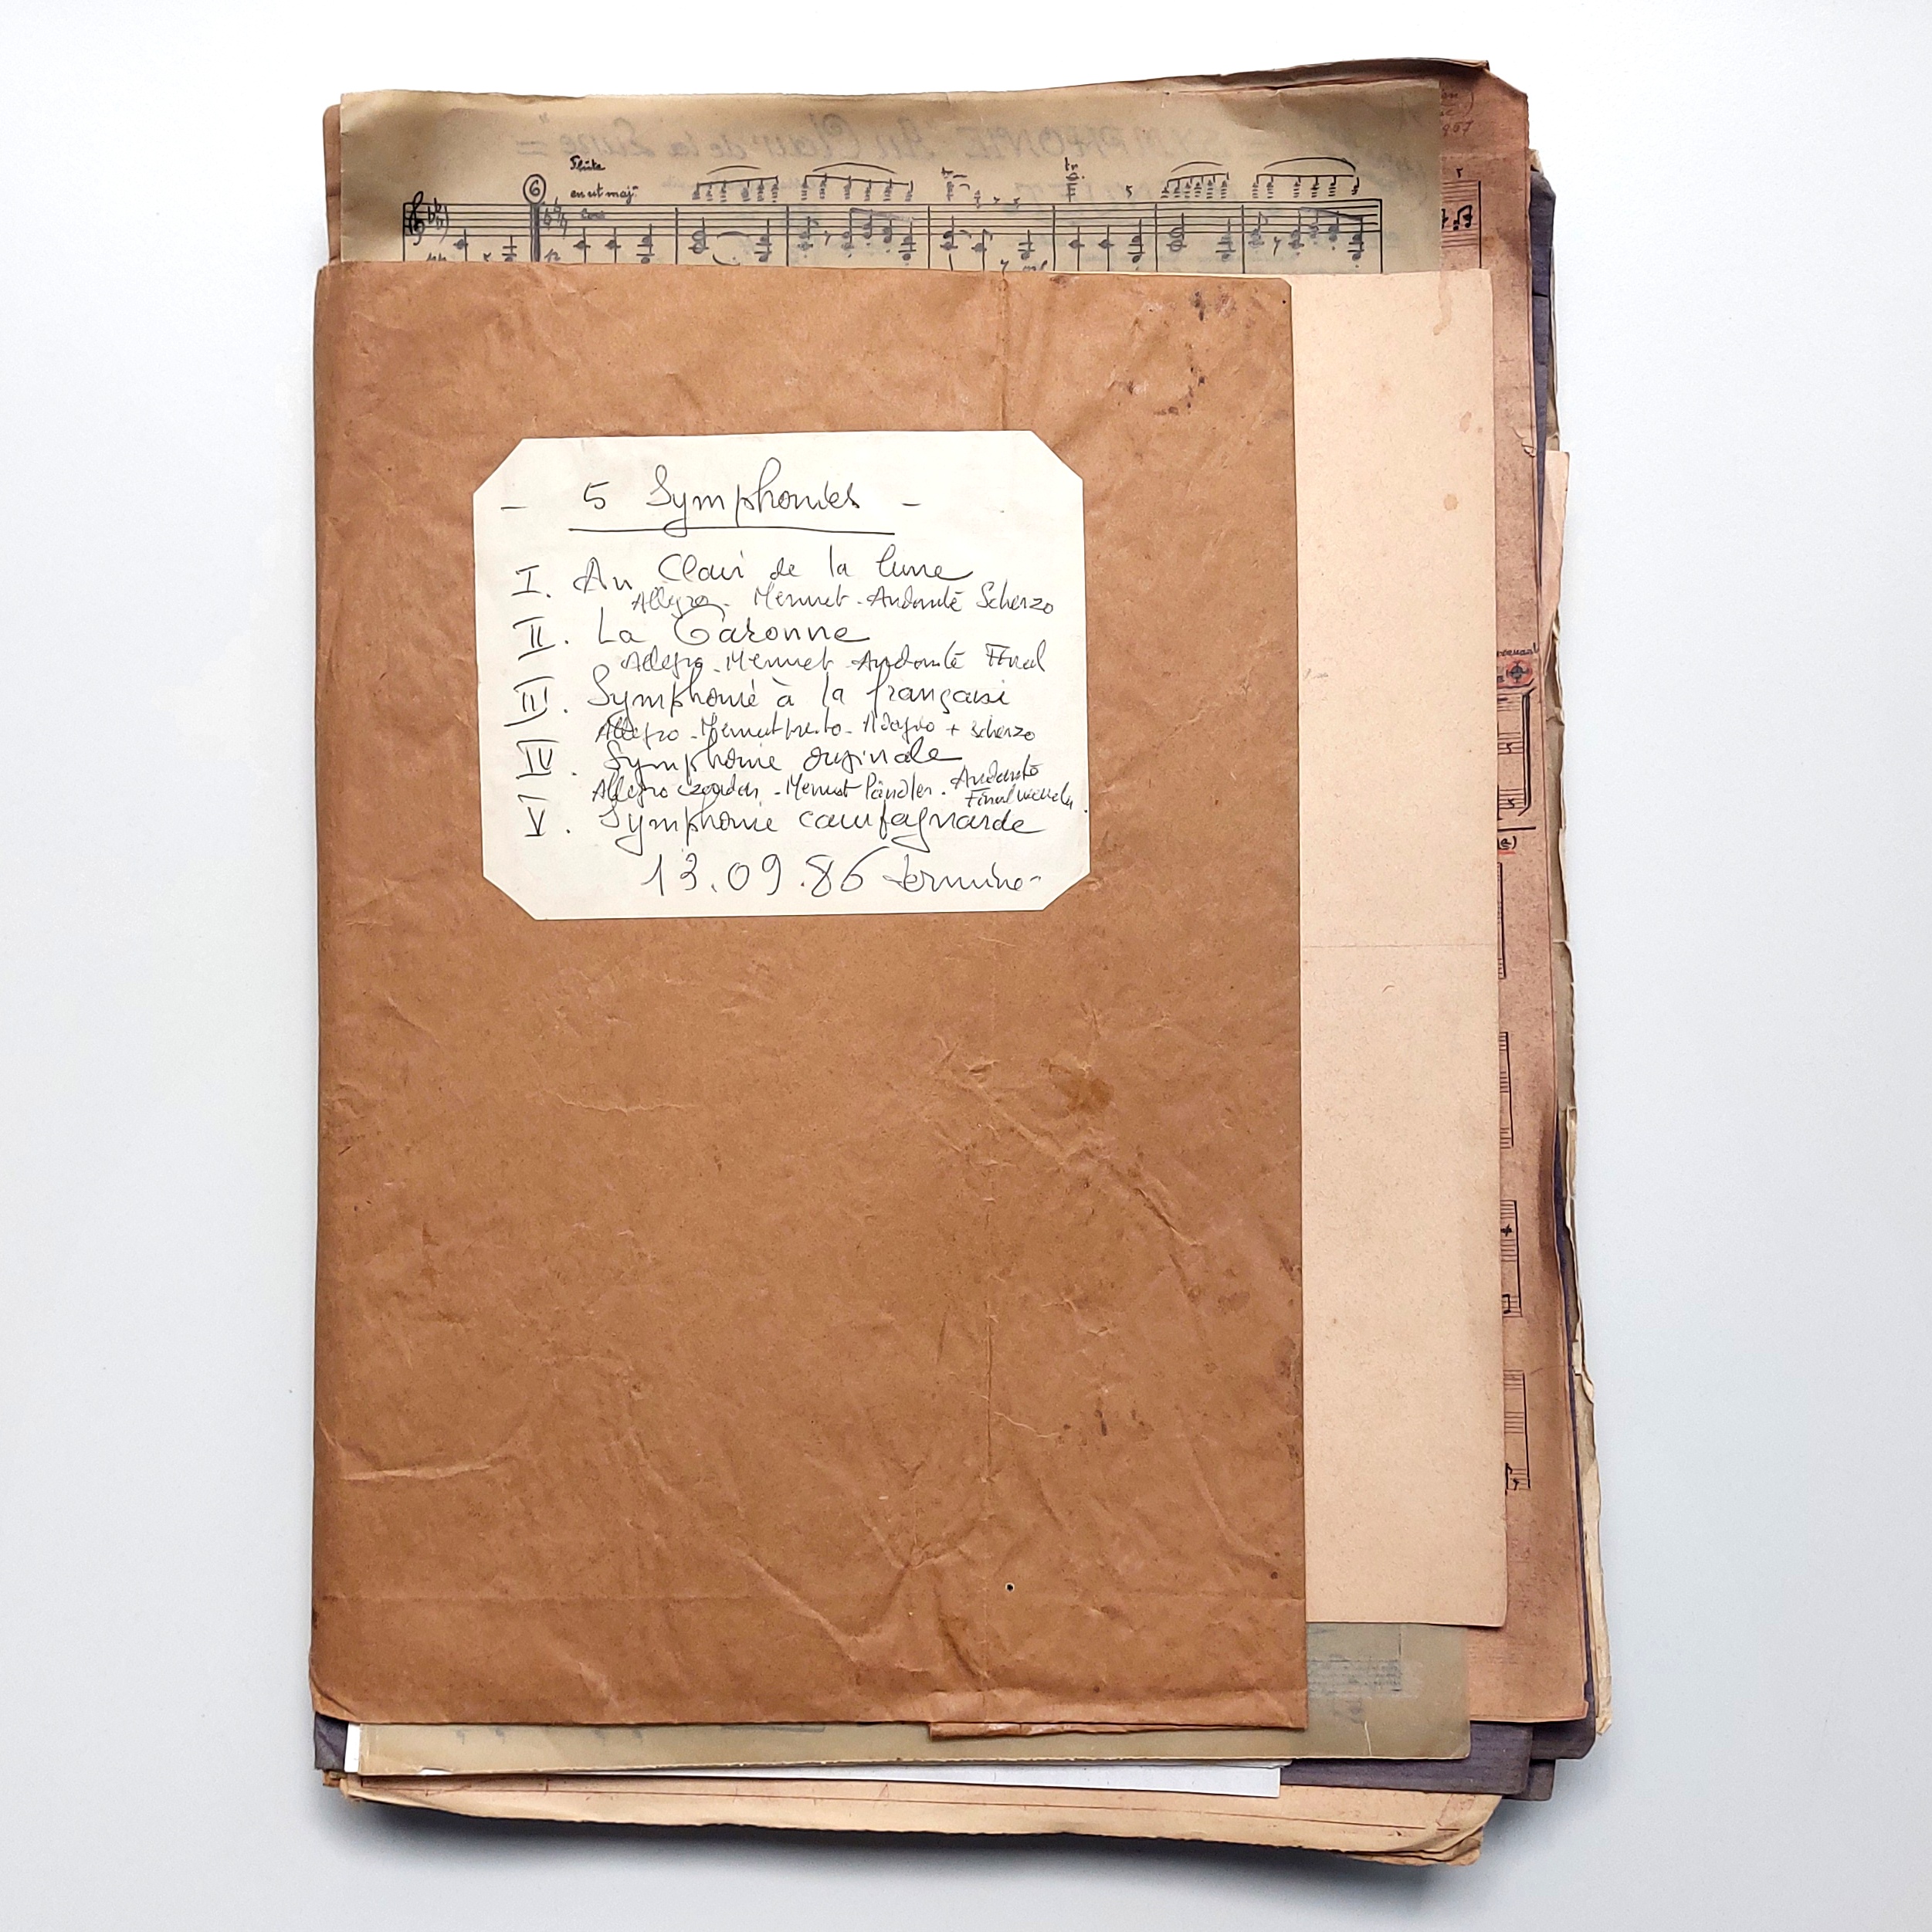 = SYMPHONIE "Au Clair de la Lune" =
Flûte
6
en ut maj.
- 5 Symphonies -
I. Au Clair de la lune
Allegro - Menuet - Andante Scherzo
II. La Garonne
Allegro - Menuet - Andante Final
III. Symphonie à la française
Allegro - Menuet presto - Adagio + scherzo
IV. Symphonie originale
Allegro - Menuet Ländler - Andante
Final
V. Symphonie campagnarde
13.09.86 terminé